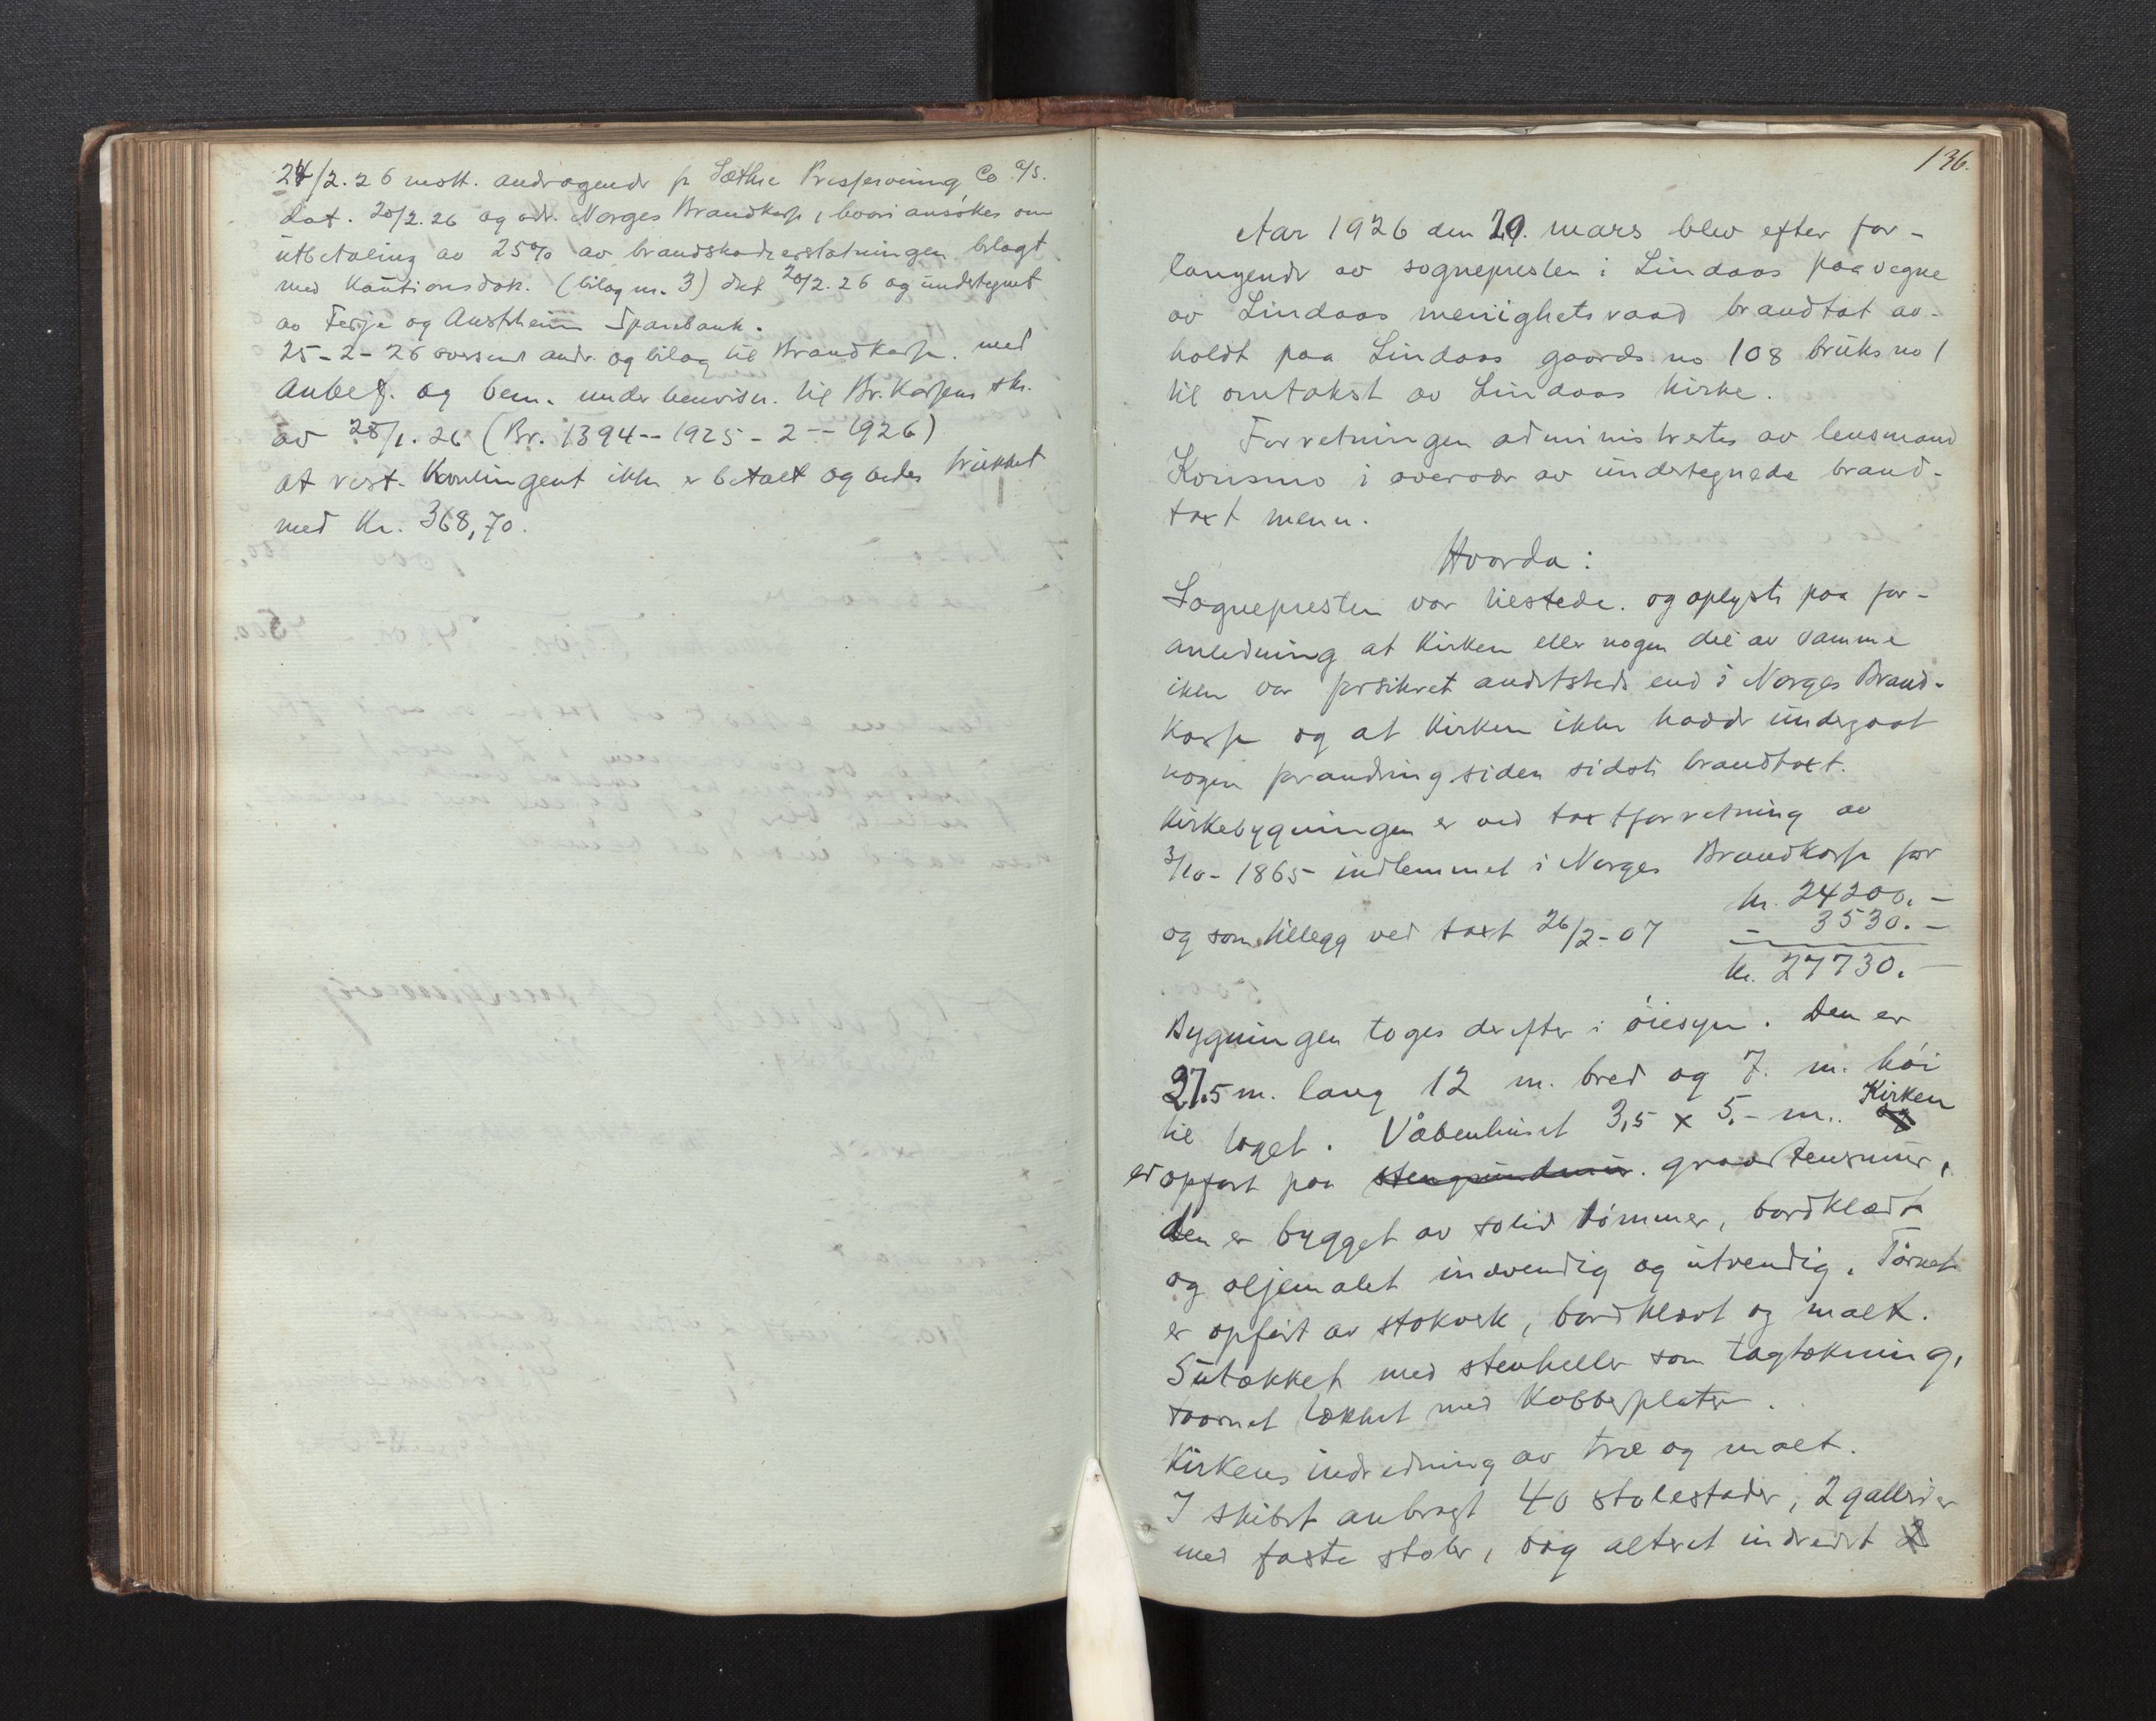 24/2.26 mott. andragende fr Sæthre Preserveing Co a/s.
dat. 20/2.26 og adr. Norges Brandkasse, hvori ansøkes om
utbetaling av 25% av brandskadeerstatningen bilagt
med Kautionsdok. (bilag nr. 3) dat 20/2.26 og undertegnet
av Fedje og Austrheim Sparebank.
25-2-26 oversend andr. og bilag til Brandkasse. med
Anbef. og bem. under henvisn. til Br. Kassens skr.
av 28/1.26 (Br. 1394--1925-2--1926)
at rest. Kontingent ikke er betalt og bedes trukket
med Kr. 368,70.
136.
Aar 1926 den 29. mars blev efter for-
langende av sognepresten i Lindaas paa vegne
av Lindaas menighetsraad brandtakst av-
holdt paa Lindaas gaards no 108 bruks no 1
til omtakst av Lindaas Kirke.
Forretningen administrertes av lensmand
Konsmo i overvær av undertegnede brand-
taxt menn.
Hvorda:
Sognepresten var tilstede. og oplyste paa for-
anledning at Kirken eller nogen del av samme
ikke var forsikret andetsteds end i Norges Brand-
Kasse og at Kirken ikke hadde undergaat
nogen forandring siden sidste brandtaxt.
Kirkebygningen er ved taxtforretning av
3/10-1865 indlemmet i Norges Brandkasse for
kr. 24200.-
og som tillegg ved taxt 26/2-07 - 3530.-
kr. 27730.-
Bygningen toges derefter i øiesyn. Den er
27.5 m. lang 12 m. bred og 7. m. høi
til taget. Våbenhuset 3,5 x 5.- m.. Kirken
er opført paa stengrundmur. graastensmur,
den er bygget av solid tømmer, bordklædt
og oljemalet indvendig og utvendig. Tårnet
er opført av stokverk, bordklædt og malt.
Sutækket med stenheller som tagtækning,
taarnet tækket med Kobberplater.
Kirkens indredning av træ og malt.
I skibet anbragt 40 stolestader, 2 gallerier
med faste stoler, og alteret indredet